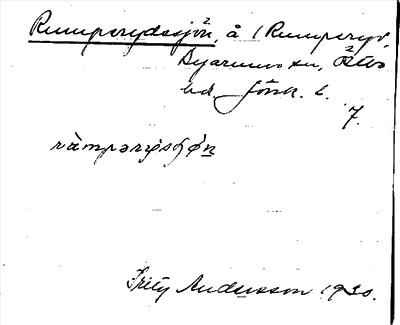 Rumperydssjön, å (Rumperyd,
Byarums sn, Östbo
hd. Jönk. l.
7.
ràmpərysʃøn
Fritz Andersson 1930.